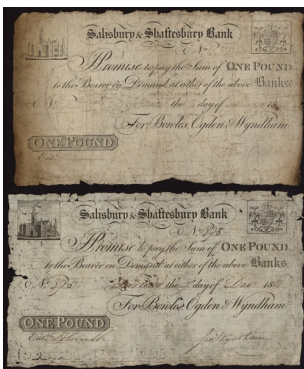 Salisbury & Shaftesbury Bank
No
I Promise to pay the Sum of ONE POUND
to the Bearer on Demand at either of the above Banks
No the day of 18
For Bowles, Ogden & Wyndham
ONE POUND
Entd
Salisbury & Shaftesbury Bank
No 898
I Promise to pay the Sum of ONE POUND
to the Bearer on Demand at either of the above Banks
No 898 the day of Dec 18
For Bowles, Ogden & Wyndham
ONE POUND
Entd